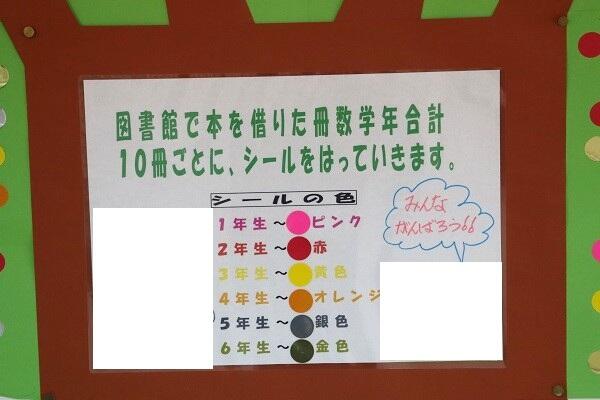 図書館で本を借りた冊数学年合計
10冊ごとに、シールをはっていきます。
シールの色
1年生～ピンク
2年生～赤
3年生～黄色
4年生～オレンジ
5年生～銀色
6年生～金色
みんな
がんばろう!!